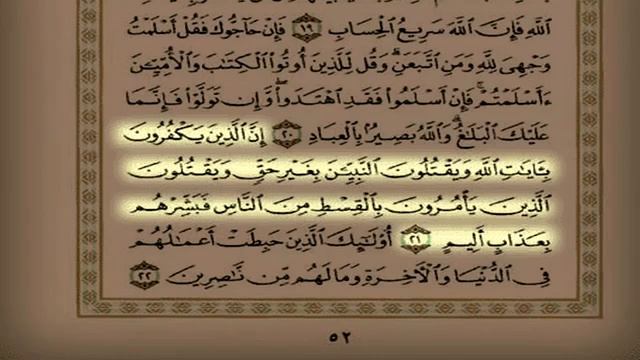 ٱللَّهِ فَإِنَّ ٱللَّهَ سَرِيعُ ٱلْحِسَابِ ١٩ فَإِنْ حَآجُّوكَ فَقُلْ أَسْلَمْتُ
وَجْهِىَ لِلَّهِ وَمَنِ ٱتَّبَعَنِ ۗ وَقُل لِّلَّذِينَ أُوتُوا۟ ٱلْكِتَٰبَ وَٱلْأُمِّيِّـۧنَ
ءَأَسْلَمْتُمْ ۚ فَإِنْ أَسْلَمُوا۟ فَقَدِ ٱهْتَدَوا۟ ۖ وَّإِن تَوَلَّوْا۟ فَإِنَّمَا
عَلَيْكَ ٱلْبَلَٰغُ ۗ وَٱللَّهُ بَصِيرٌۢ بِٱلْعِبَادِ ٢٠ إِنَّ ٱلَّذِينَ يَكْفُرُونَ
بِـَٔايَٰتِ ٱللَّهِ وَيَقْتُلُونَ ٱلنَّبِيِّـۧنَ بِغَيْرِ حَقٍّ وَيَقْتُلُونَ
ٱلَّذِينَ يَأْمُرُونَ بِٱلْقِسْطِ مِنَ ٱلنَّاسِ فَبَشِّرْهُم
بِعَذَابٍ أَلِيمٍ ٢١ أُو۟لَٰٓئِكَ ٱلَّذِينَ حَبِطَتْ أَعْمَٰلُهُمْ
فِى ٱلدُّنْيَا وَٱلْـَٔاخِرَةِ وَمَا لَهُم مِّن نَّٰصِرِينَ ٢٢
٥٢